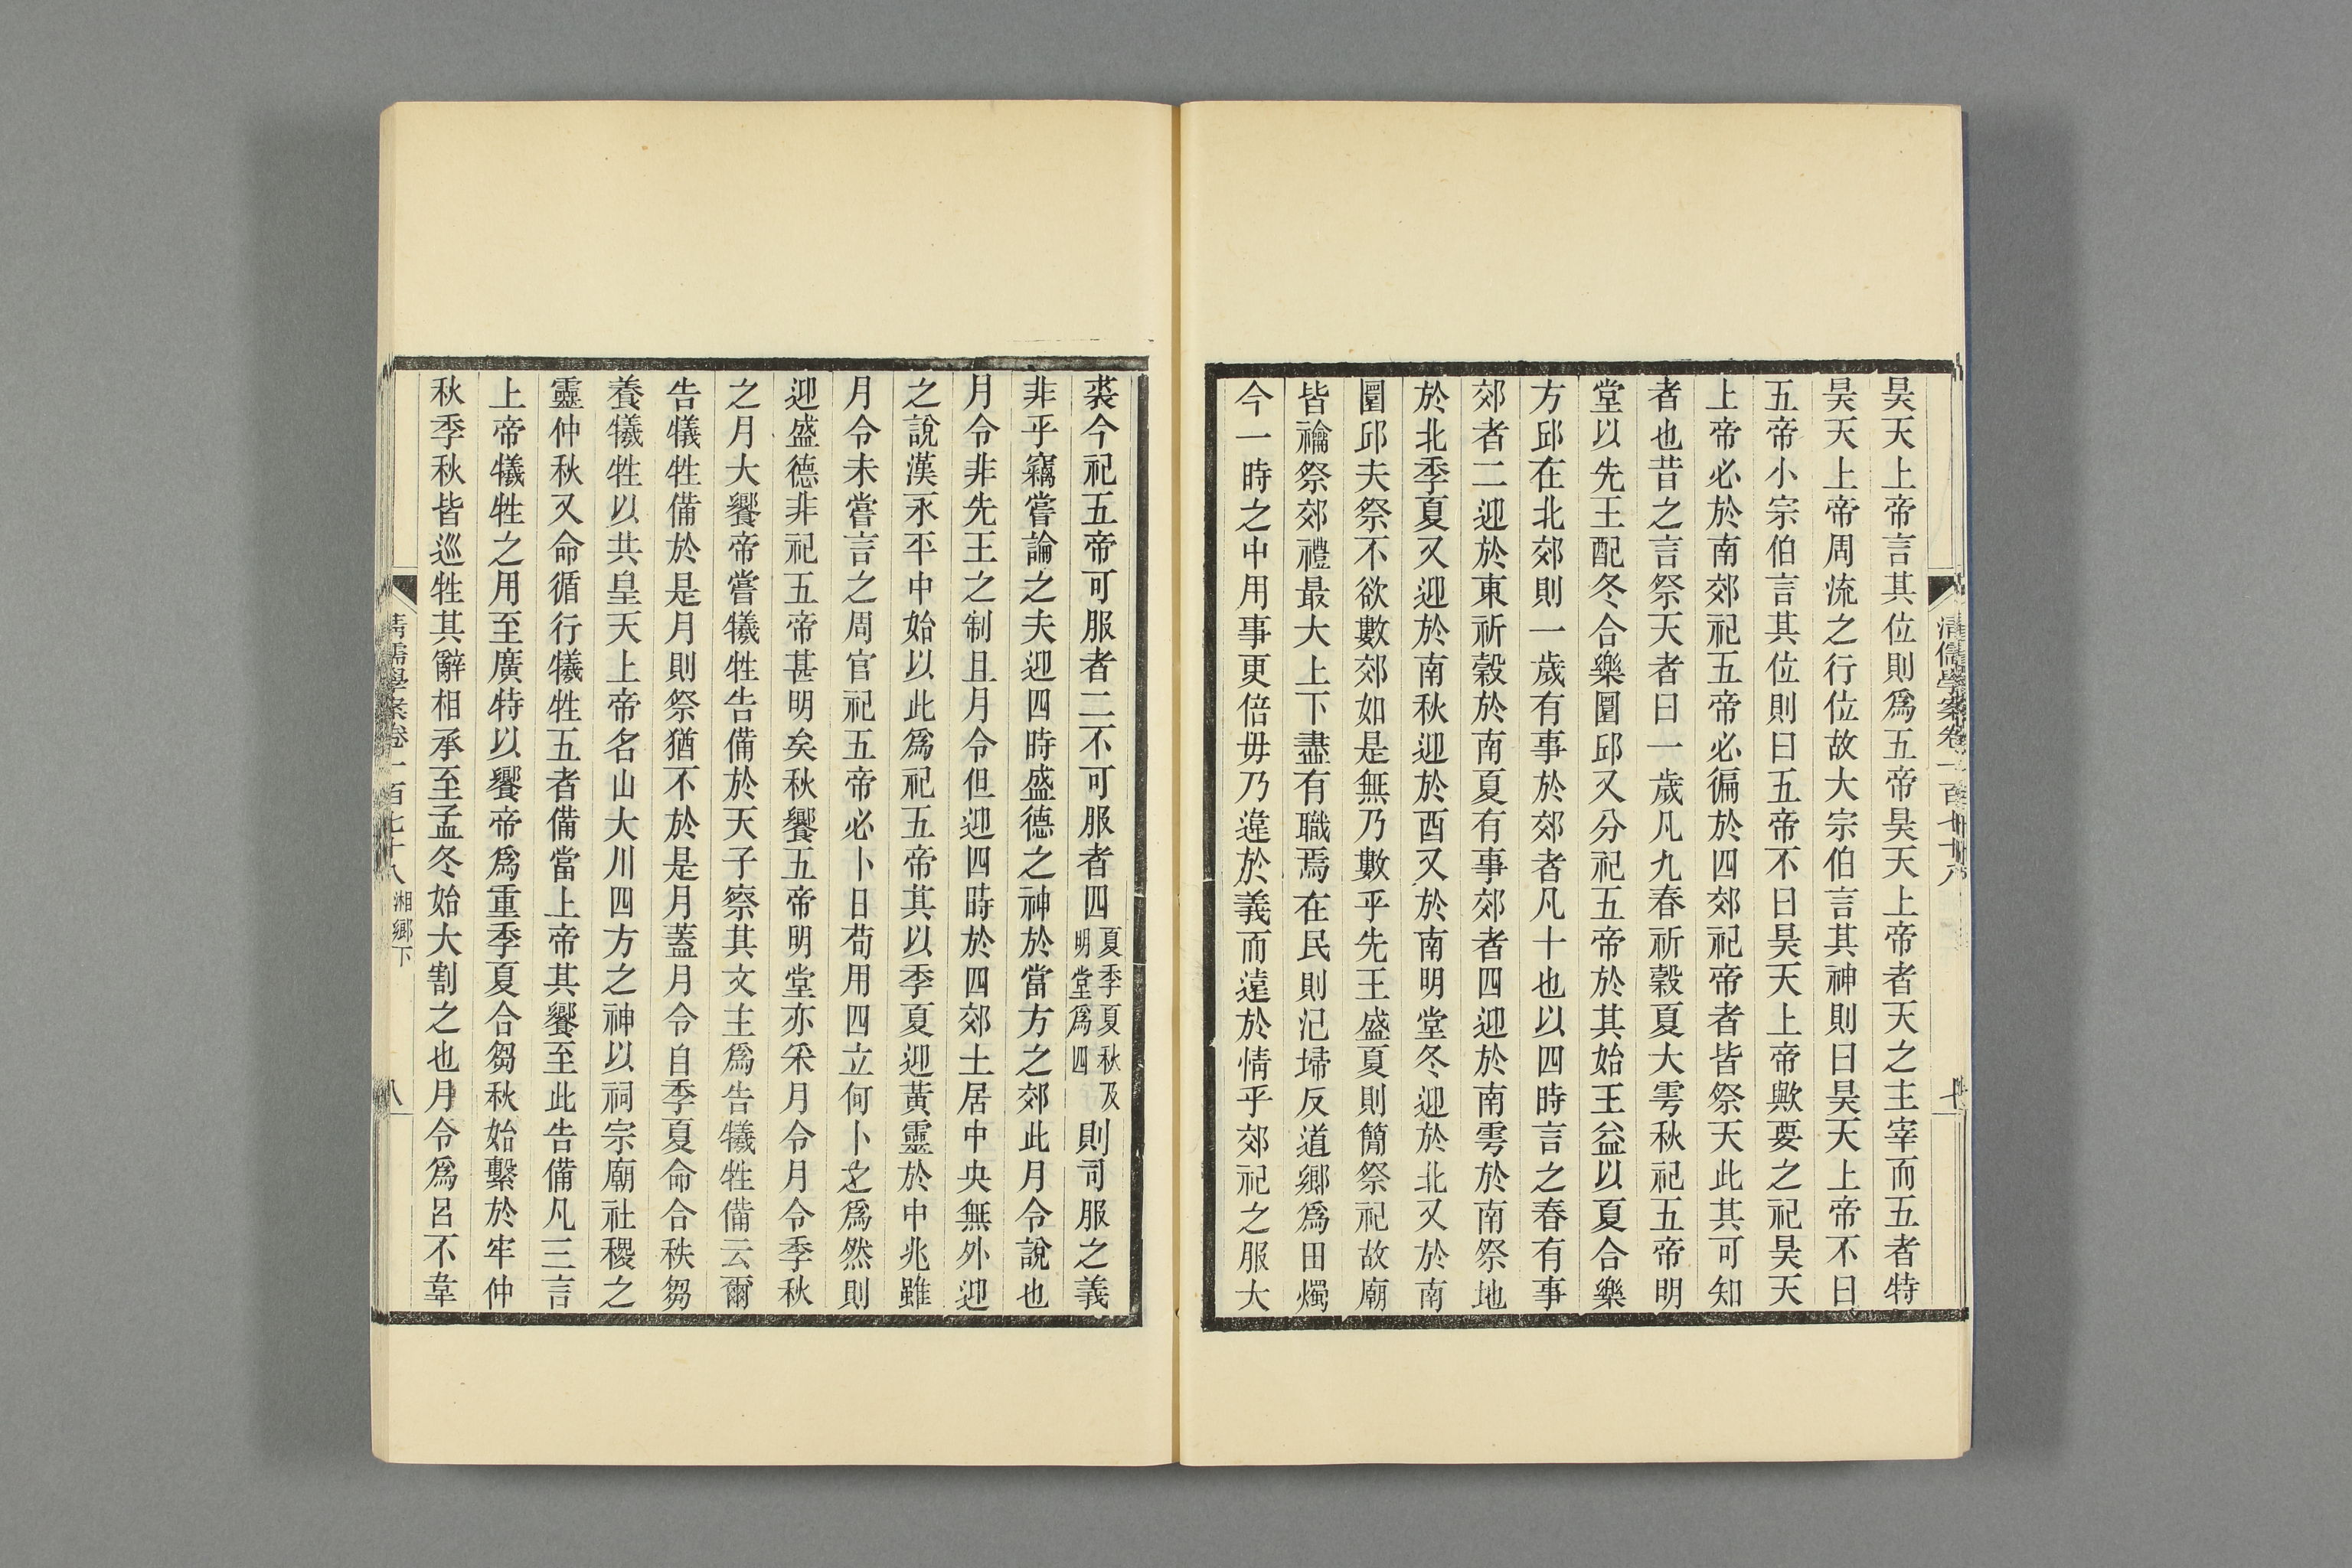 昊天上帝言其位則爲五帝昊天上帝者天之主宰而五者特
昊天上帝周流之行位故大宗伯言其神則曰昊天上帝不曰
五帝小宗伯言其位則曰五帝不曰昊天上帝歟要之祀昊天
上帝必於南郊祀五帝必徧於四郊祀帝者皆祭天此其可知
者也昔之言祭天者曰一歲凡九春祈穀夏大雩秋祀五帝明
堂以先王配冬合樂圜邱又分祀五帝於其始王益以夏合樂
方邱在北郊則一歲有事於郊者凡十也以四時言之春有事
郊者二迎於東祈穀於南夏有事郊者四迎於南雩於南祭地
於北季夏又迎於南秋迎於酉又於南明堂冬迎於北又於南
圜邱夫祭不欲數郊如是無乃數乎先王盛夏則簡祭祀故廟
皆禴祭郊禮最大上下盡有職焉在民則氾埽反道鄉爲田燭
今一時之中用事更倍毋乃違於義而遠於情乎郊祀之服大
裘今祀五帝可服者二不可服者四夏季夏秋及明堂爲四則司服之義
非乎竊嘗論之夫迎四時盛德之神於當方之郊此月令說也
月令非先王之制且月令但迎四時於四郊土居中央無外迎
之說漢永平中始以此爲祀五帝其以季夏迎黃靈於中兆雖
月令未嘗言之周官祀五帝必卜日苟用四立何卜之爲然則
迎盛德非祀五帝甚明矣秋饗五帝明堂亦釆月令月令季秋
之月大饗帝嘗犧牲告備於天子察其文主爲告犧牲備云爾
告犧牲備於是月則祭猶不於是月蓋月令自季夏命合秩芻
養犧牲以共皇天上帝名山大川四方之神以祠宗廟社稷之
靈仲秋又命循行犧牲五者備當上帝其饗至此告備凡三言
上帝犧牲之用至廣特以饗帝爲重季夏合芻秋始繫於牢仲
秋季秋皆巡牲其辭相承至孟冬始大割之也月令爲呂不韋
清儒學案卷一百七十八 湘鄉下 八